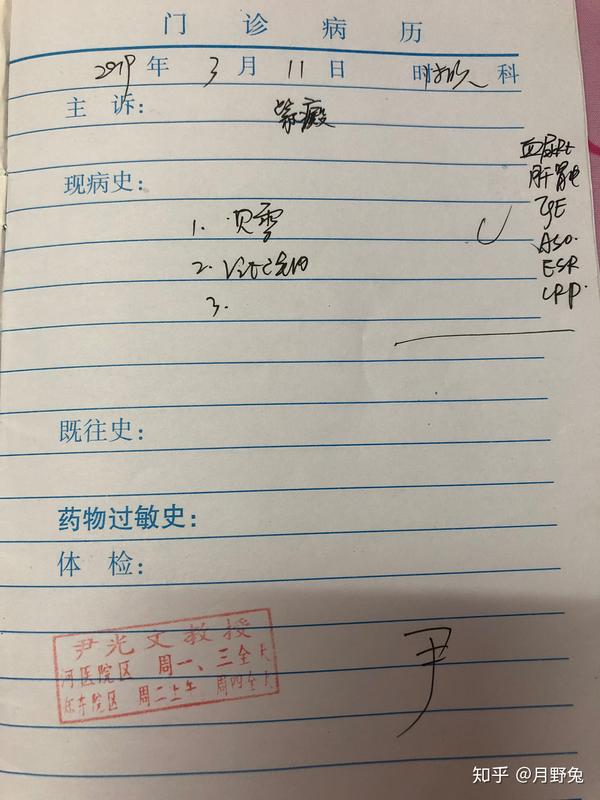 门诊病历
2019年3月11日 科
主诉: 紫癜
血尿Rt
现病史:
肝肾电
IgE
1.贝雪
ASO.
2.Vitc
ESR
3.
CRP.
既往史:
药物过敏史:
体检:
尹光文教授
河医院区 周一、三全天
郑东院区 周二上午 周四全天
尹
知乎 @月野兔